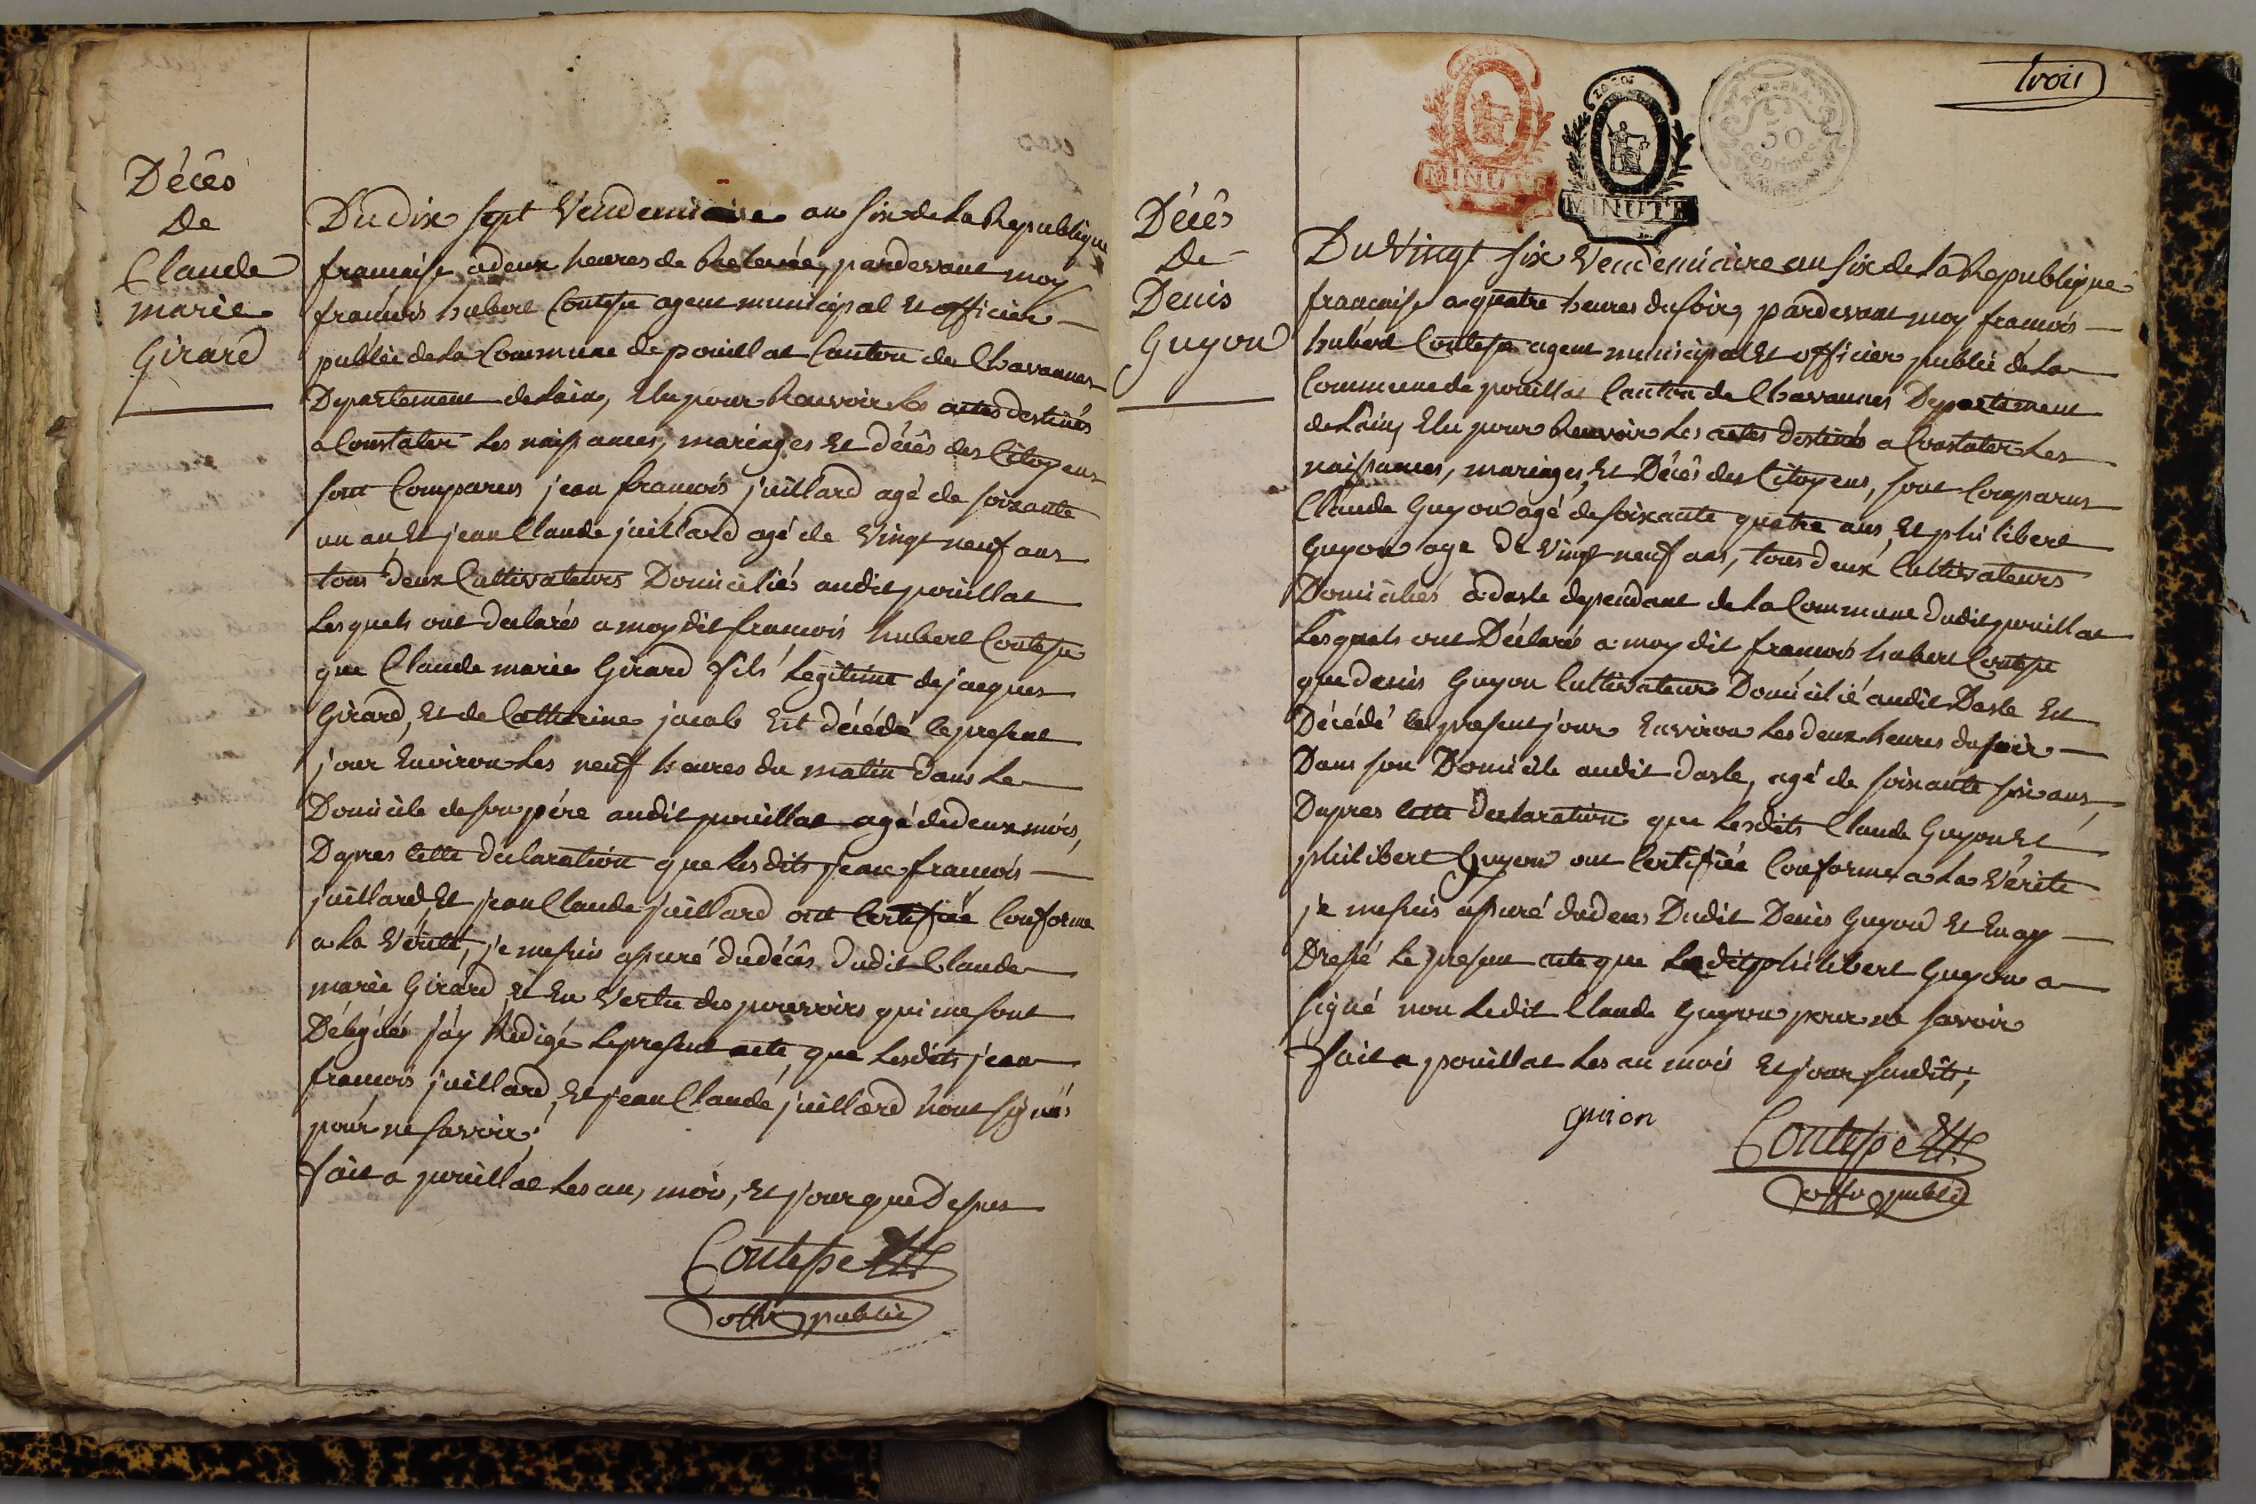 Décês
De
Claude
marie
Girard
Du dix sept Vendemiaire an six de La Republique
francaise a deux heures de Relevée, pardevant moy
francois hubert Contesse agent municipal et officier
public de la Commune de pouillat Canton de Chavannes
Departement de Lain, Elu pour Recevoir les actes destinés
a Constater Les naissances, mariages et décês des Citoyens
sont Comparus jean francois juillard agé de soixante
un an Et jean Claude juillard agé de Vingt neuf ans
tous deux Cultivateurs Domiciliés audit pouillat
Lesquels ont declarés a moy dit francois hubert Contesse
que Claude marie Girard fils Légitime de jacques
Girard, Et de Catherine jacob Est décédé le present
jour Environ Les neuf heures du matin dans Le
Domicile de son pére audit pouillat agé de deux mois,
Dapres Cette declaration que Lesdits jean francois
juillard, Et jean Claude juillard ont Certifiée Conforme
a La Vérité, je me suis assuré du décês dudit Claude
marie Girard, et En Vertu des pouvoirs qui me sont
Délégués j'ay Redigé Le present acte, que Lesdits jean
francois juillard, Et jean Claude juillard n'ont signés
pour ne savoir;
fait a pouillat Les an, mois, Et jour que Dessus
Contesse
offr public
trois
MINUTE
MINUTE
50
centimes
Décês
De
Denis
Guyon
Du Vingt six Vendemiaire an six de La Republique
francaise a quatre heures du soir, pardevant moy francois
hubert Contesse agent municipal Et officier public de La
Commune de pouillat Canton de Chavannes Departement
de Lain, Elu pour Recevoir Les actes destinés a Constater Les
naissances, mariages, Et Décês des Citoyens, sont Comparus
Claude Guyon agé de soixante quatre ans, Et philibert
Guyon age de Vingt neuf ans, tous deux Cultivateurs
Domiciliés a dasle dependant de La Commune dudit pouillat
Lesquels ont Déclarés a moy dit francois hubert Contesse
que denis Guyon Cultivateur Domicilié audit Dasle Est
Décédé le present jour Environ Les deux heures du soir
Dans son Domicile audit dasle, agé de soixante six ans,
Dapres Cette declaration que Lesdits Claude Guyon Et
philibert Guyon ont Certifiée Conforme a La Vérité
je me suis assuré du deces Dudit Denis Guyon Et En ay
Dressé Le present acte que Ledit philibert Guyon a
signé non Ledit Claude Guyon pour ne savoir
fait a pouillat Les an mois Et jour susdits;
guion
Contesse
offr public